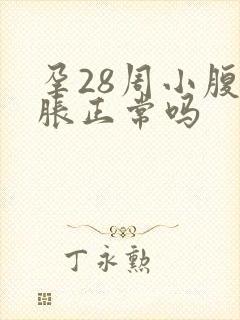 孕28周小腹
胀正常吗
丁永勲